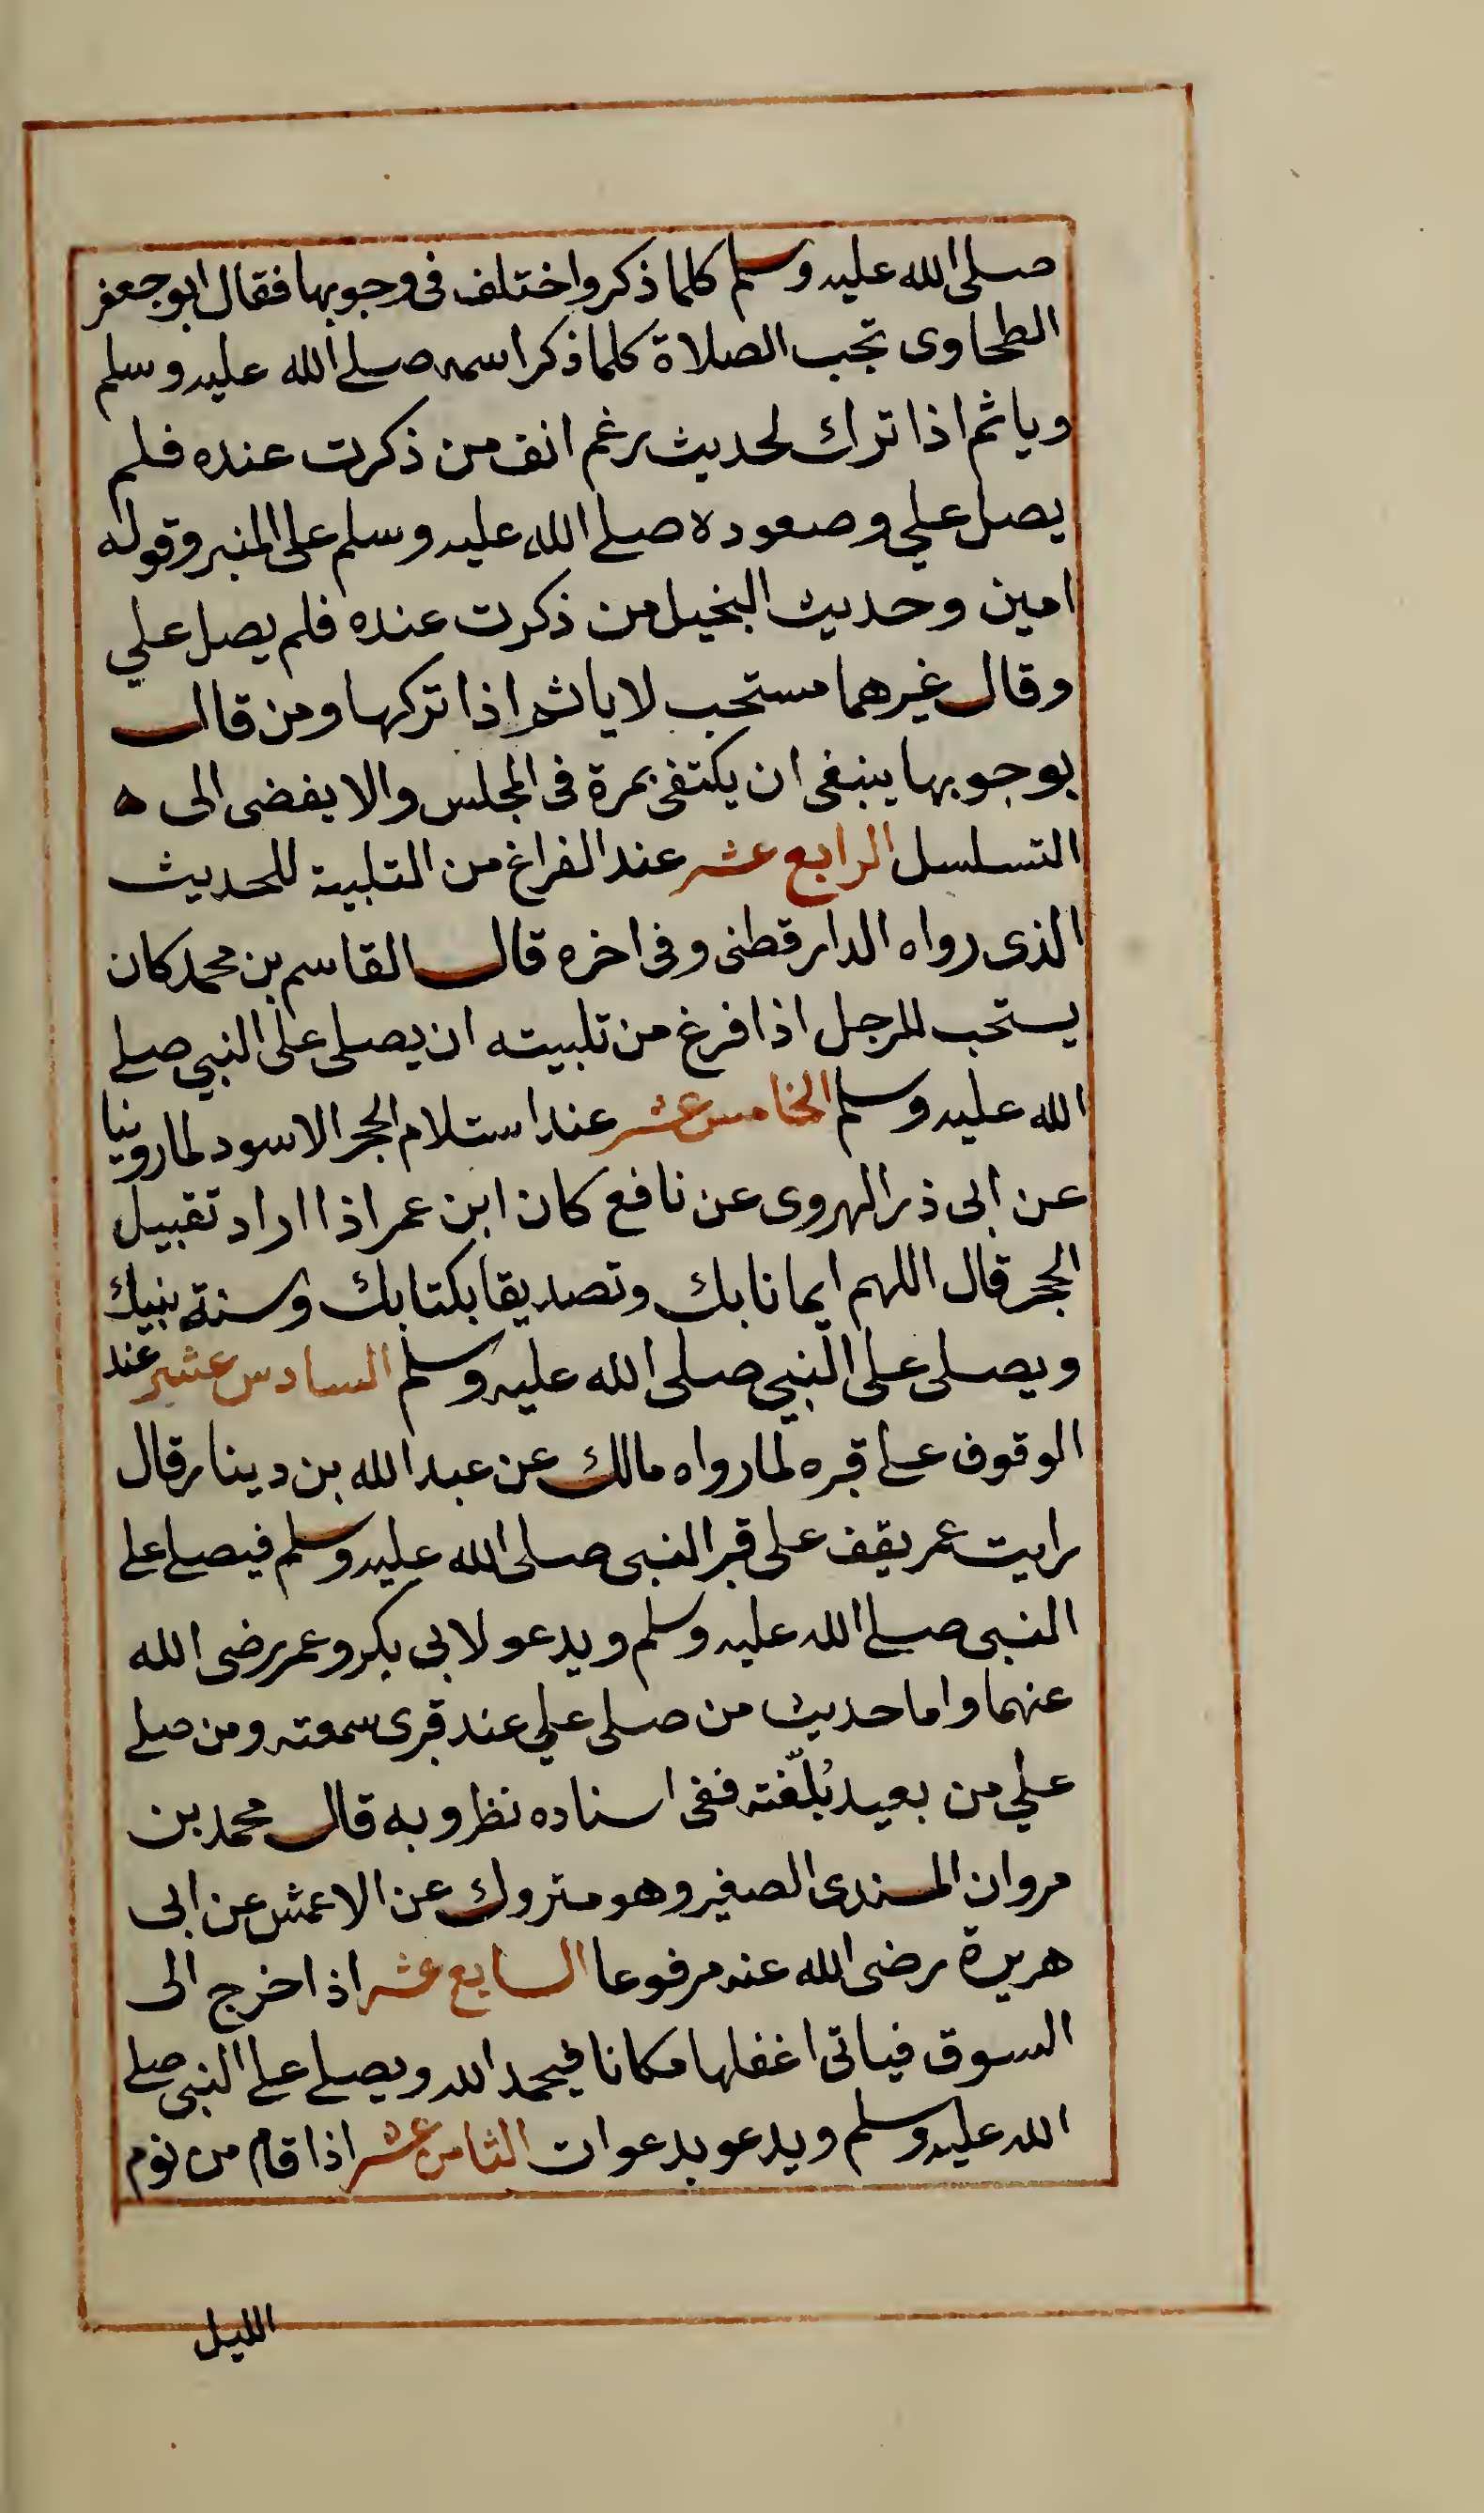 صلى الله عليه وسلم كلما ذكر واختلف فى وجوبها فقال ابو جعفر
الطحاوى تجب الصلاة كلما ذكر اسمه صلى الله عليه وسلم
وياثم اذا ترك لحديث رغم انف من ذكرت عنده فلم
يصل علي وصعوده صلى الله عليه وسلم على المنبر وقوله
امين وحديث البخيل من ذكرت عنده فلم يصل علي
وقال غيرهما مستحب لا ياثم اذا تركها ومن قال
بوجوبها ينبغى ان يكتفى بمرة فى المجلس والا يفضى الى ه
التسلسل الرابع عشر عند الفراغ من التلبية للحديث
الذى رواه الدارقطنى وفى اخره قال القاسم بن محمد كان
يستحب للرجل اذا فرغ من تلبيته ان يصلى على النبي صلى
الله عليه وسلم الخامس عشر عند استلام الحجر الاسود لما روينا
عن ابى ذر الهروى عن نافع كان ابن عمر اذا اراد تقبيل
الحجر قال اللهم ايمانا بك وتصديقا بكتابك وسنة نبيك
ويصلى على النبي صلى الله عليه وسلم السادس عشر عند
الوقوف على قبره لما رواه مالك عن عبد الله بن دينار قال
رايت عمر يقف على قبر النبى صلى الله عليه وسلم فيصلى على
النبى صلى الله عليه وسلم ويدعو لابى بكر وعمر رضى الله
عنهما واما حديث من صلى علي عند قبرى سمعته ومن صلى
علي من بعيد بُلّغته ففى اسناده نظر وبه قال محمد بن
مروان السندى الصغير وهو متروك عن الاعمش عن ابى
هريرة رضى الله عنه مرفوعا السابع عشر اذا خرج الى
السوق فياتى اغفلها مكانا فيحمد الله ويصلى على النبى صلى
الله عليه وسلم ويدعو بدعوات الثامن عشر اذا قام من نوم
الليل